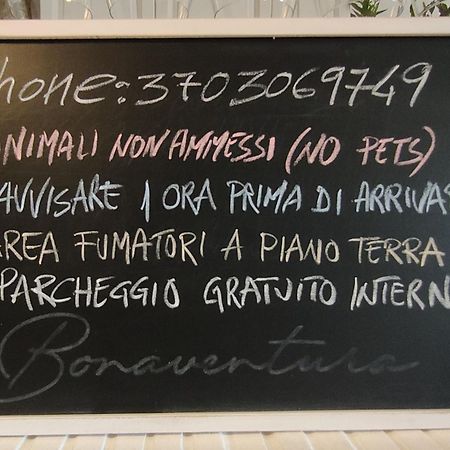 hone: 3703069749
NIMALI NON AMMESSI (NO PETS)
AVVISARE 1 ORA PRIMA DI ARRIVA
AREA FUMATORI A PIANO TERRA
PARCHEGGIO GRATUITO INTERN
Bonaventura